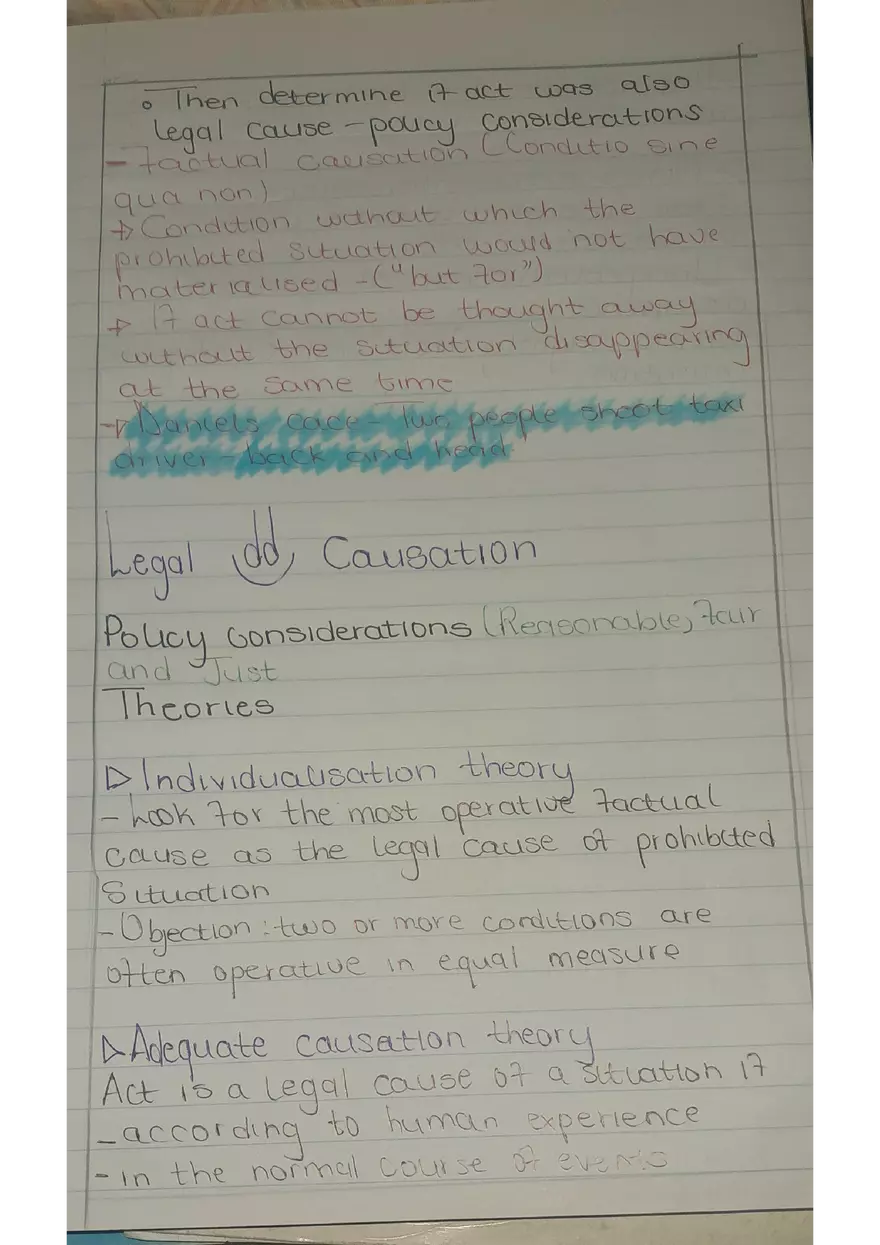 ◦ Then determine if act was also
legal cause - policy considerations
- Factual causation (Conditio sine
qua non)
→ Condition without which the
prohibited situation would not have
materialised - ("but for")
→ If act cannot be thought away
without the situation disappearing
at the same time
→ Daniels case - Two people shoot taxi
driver - back and head
Legal Causation
Policy considerations (Reasonable, fair
and Just
Theories
▷ Individualisation theory
- Look for the most operative factual
cause as the legal cause of prohibited
Situation
- Objection: two or more conditions are
often operative in equal measure
▷ Adequate causation theory
Act is a legal cause of a situation if
- according to human experience
- in the normal course of events